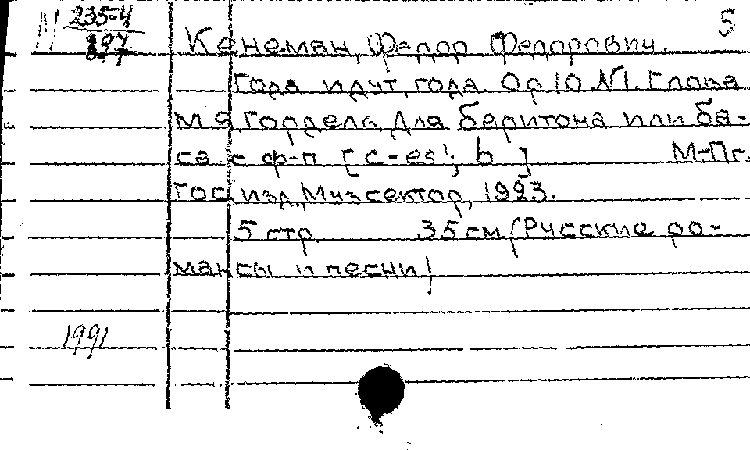 М 235-4
5
Кенеман, Федор Федорович.
Года идут, года. Ор 10. №1. Слова
М Я Гордела. Для баритона или ба-
са с ф-п [c-es¹; b] М-Пг.
Гос изд., Музсектор, 1923.
5 стр. 35 см (Русские ро-
мансы и песни)
1991